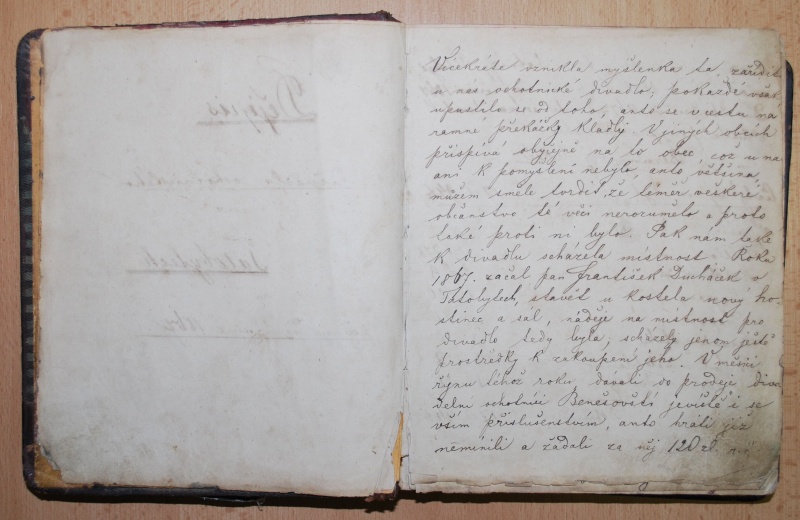 Vícekráte vznikla myšlenka ta zařídit
u nas ochotnické divadlo, pokaždé však
upustilo se od toho, anto se v cestu na
ramné překážky kládly. V jiných obcích
přispívá obyčejně na to obec, což u na
ani k pomyšlení nebylo, anto většina,
můžem směle tvrdit, že téměř veškeré
občanstvo té věci nerozumělo a proto
také proti ni bylo. Pak nám také
k divadlu scházela místnost. Roku
1867. začal pan František Ducháček v
Tatobytech, stavět u kostela nový ho-
stinec a sál, náděje na místnost pro
divadlo tedy byla; scházely jenom ještě
prostředky k zakoupení jeho. V měsíci
říjnu téhož roku, davali do prodeje diva
delní ochotníci Benešovští jeviště i se
vším příslušenstvím, anto hráti již
nemínili a žádali za něj 120 zl.
Dějepis
Tatobytech